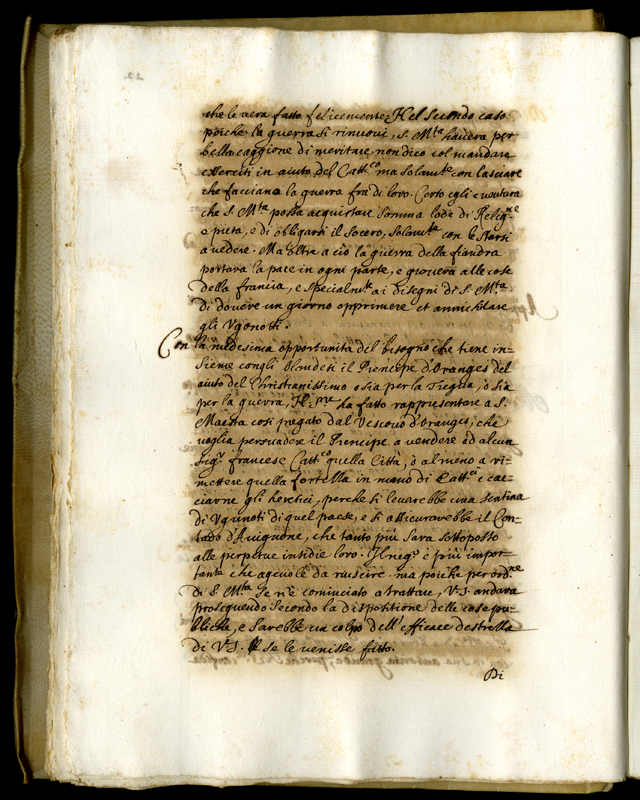 che le uera fatto felicemente. Nel Secondo caso
poiche la guerra si rinuoui, S. M.ta hauera per
bella caggione di meritare, non dico col mandare
esserciti in aiuto del Catt.co ma solam.te con lasciare
che facciano la guerra fra di loro. Certo egli è uentura
che S. M.ta possa acquistare somma lode di Relig.ne
e pietà, e di obligarsi il Socero, solam.te con le starsi
a uedere. Ma oltre a ciò la guerra della fiandra
portava la pace in ogni parte, e giouerà alle cose
della francia, e specialm.te ai disegni di S. M.ta
di douere un giorno opprimere et annichilare
gli Vgonotti.
Con la medesima opportunità del bisogno che tiene in=
sieme con gli Olandesi il Prencipe d'Oranges del
aiuto del Christianissimo o sia per la Tregua, ò sia
per la guerra, N. S.re ha fatto rappresentare a S.
Maestà così pregato dal Vescouo d'Oranges, che
uoglia persuadere il Prencipe a uendere ad alcun
Sig.r francese Catt.co quella Città, ò almeno a ri=
mettere quella fortezza in mano di Catt.ci e cac=
ciarne gli heretici, perche si leuarebbe una sentina
di Vgunoti di quel paese, e si assicurarebbe il Con=
tado d'Auignone, che tanto più sarà sottoposto
alle perpetue insidie loro. Il neg.o è più impor=
tante che ageuole da riuscire. ma poiche per ord.ne
di S. M.ta se n'è cominciato a trattare, V.S. andarà
proseguendo secondo la dispositione delle cose pu=
bliche, e sarebbe un colpo dell'efficace destrezza
di V.S. se le uenisse fatto.
Di